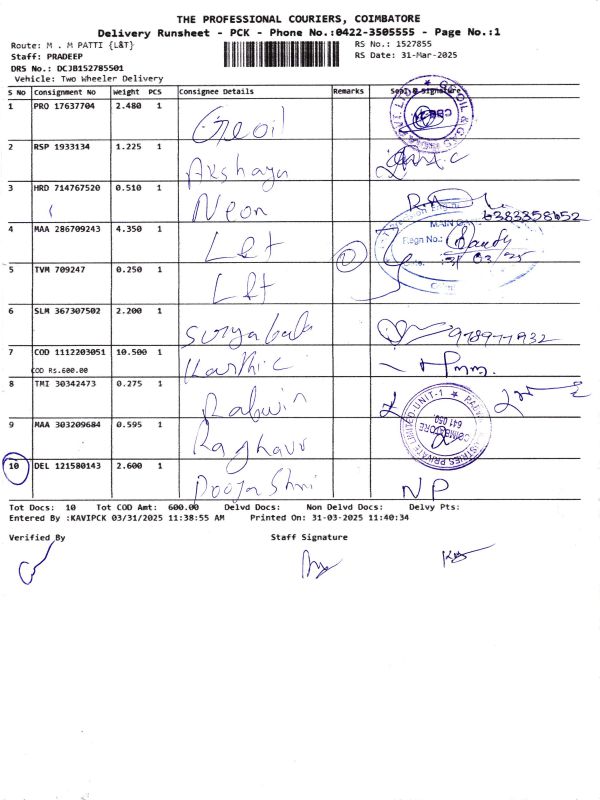 THE PROFESSIONAL COURIERS, COIMBATORE
Delivery Runsheet - PCK - Phone No.:0422-3505555 - Page No.:1
Route: M . M PATTI {L&T} RS No.: 1527855
Staff: PRADEEP RS Date: 31-Mar-2025
DRS No.: DCJB152785501
Vehicle: Two Wheeler Delivery
S No Consignment No Weight PCS Consignee Details Remarks Seal & Signature
1 PRO 17637704 2.480 1 Geoil
2 RSP 1933134 1.225 1 Akshaya
3 HRD 714767520 0.510 1 Neon 6383358652
4 MAA 286709243 4.350 1 L&t Regn No.:
5 TVM 709247 0.250 1 L&t
6 SLM 367307502 2.200 1 Suryabala
7 COD 1112203051 10.500 1 Karthic
COD Rs.600.00
8 TMI 30342473 0.275 1
9 MAA 303209684 0.595 1 COIMBATORE 641 050
10 DEL 121580143 2.600 1 Pooja Shri NP
Tot Docs: 10 Tot COD Amt: 600.00 Delvd Docs: Non Delvd Docs: Delvy Pts:
Entered By :KAVIPCK 03/31/2025 11:38:55 AM Printed On: 31-03-2025 11:40:34
Verified By Staff Signature